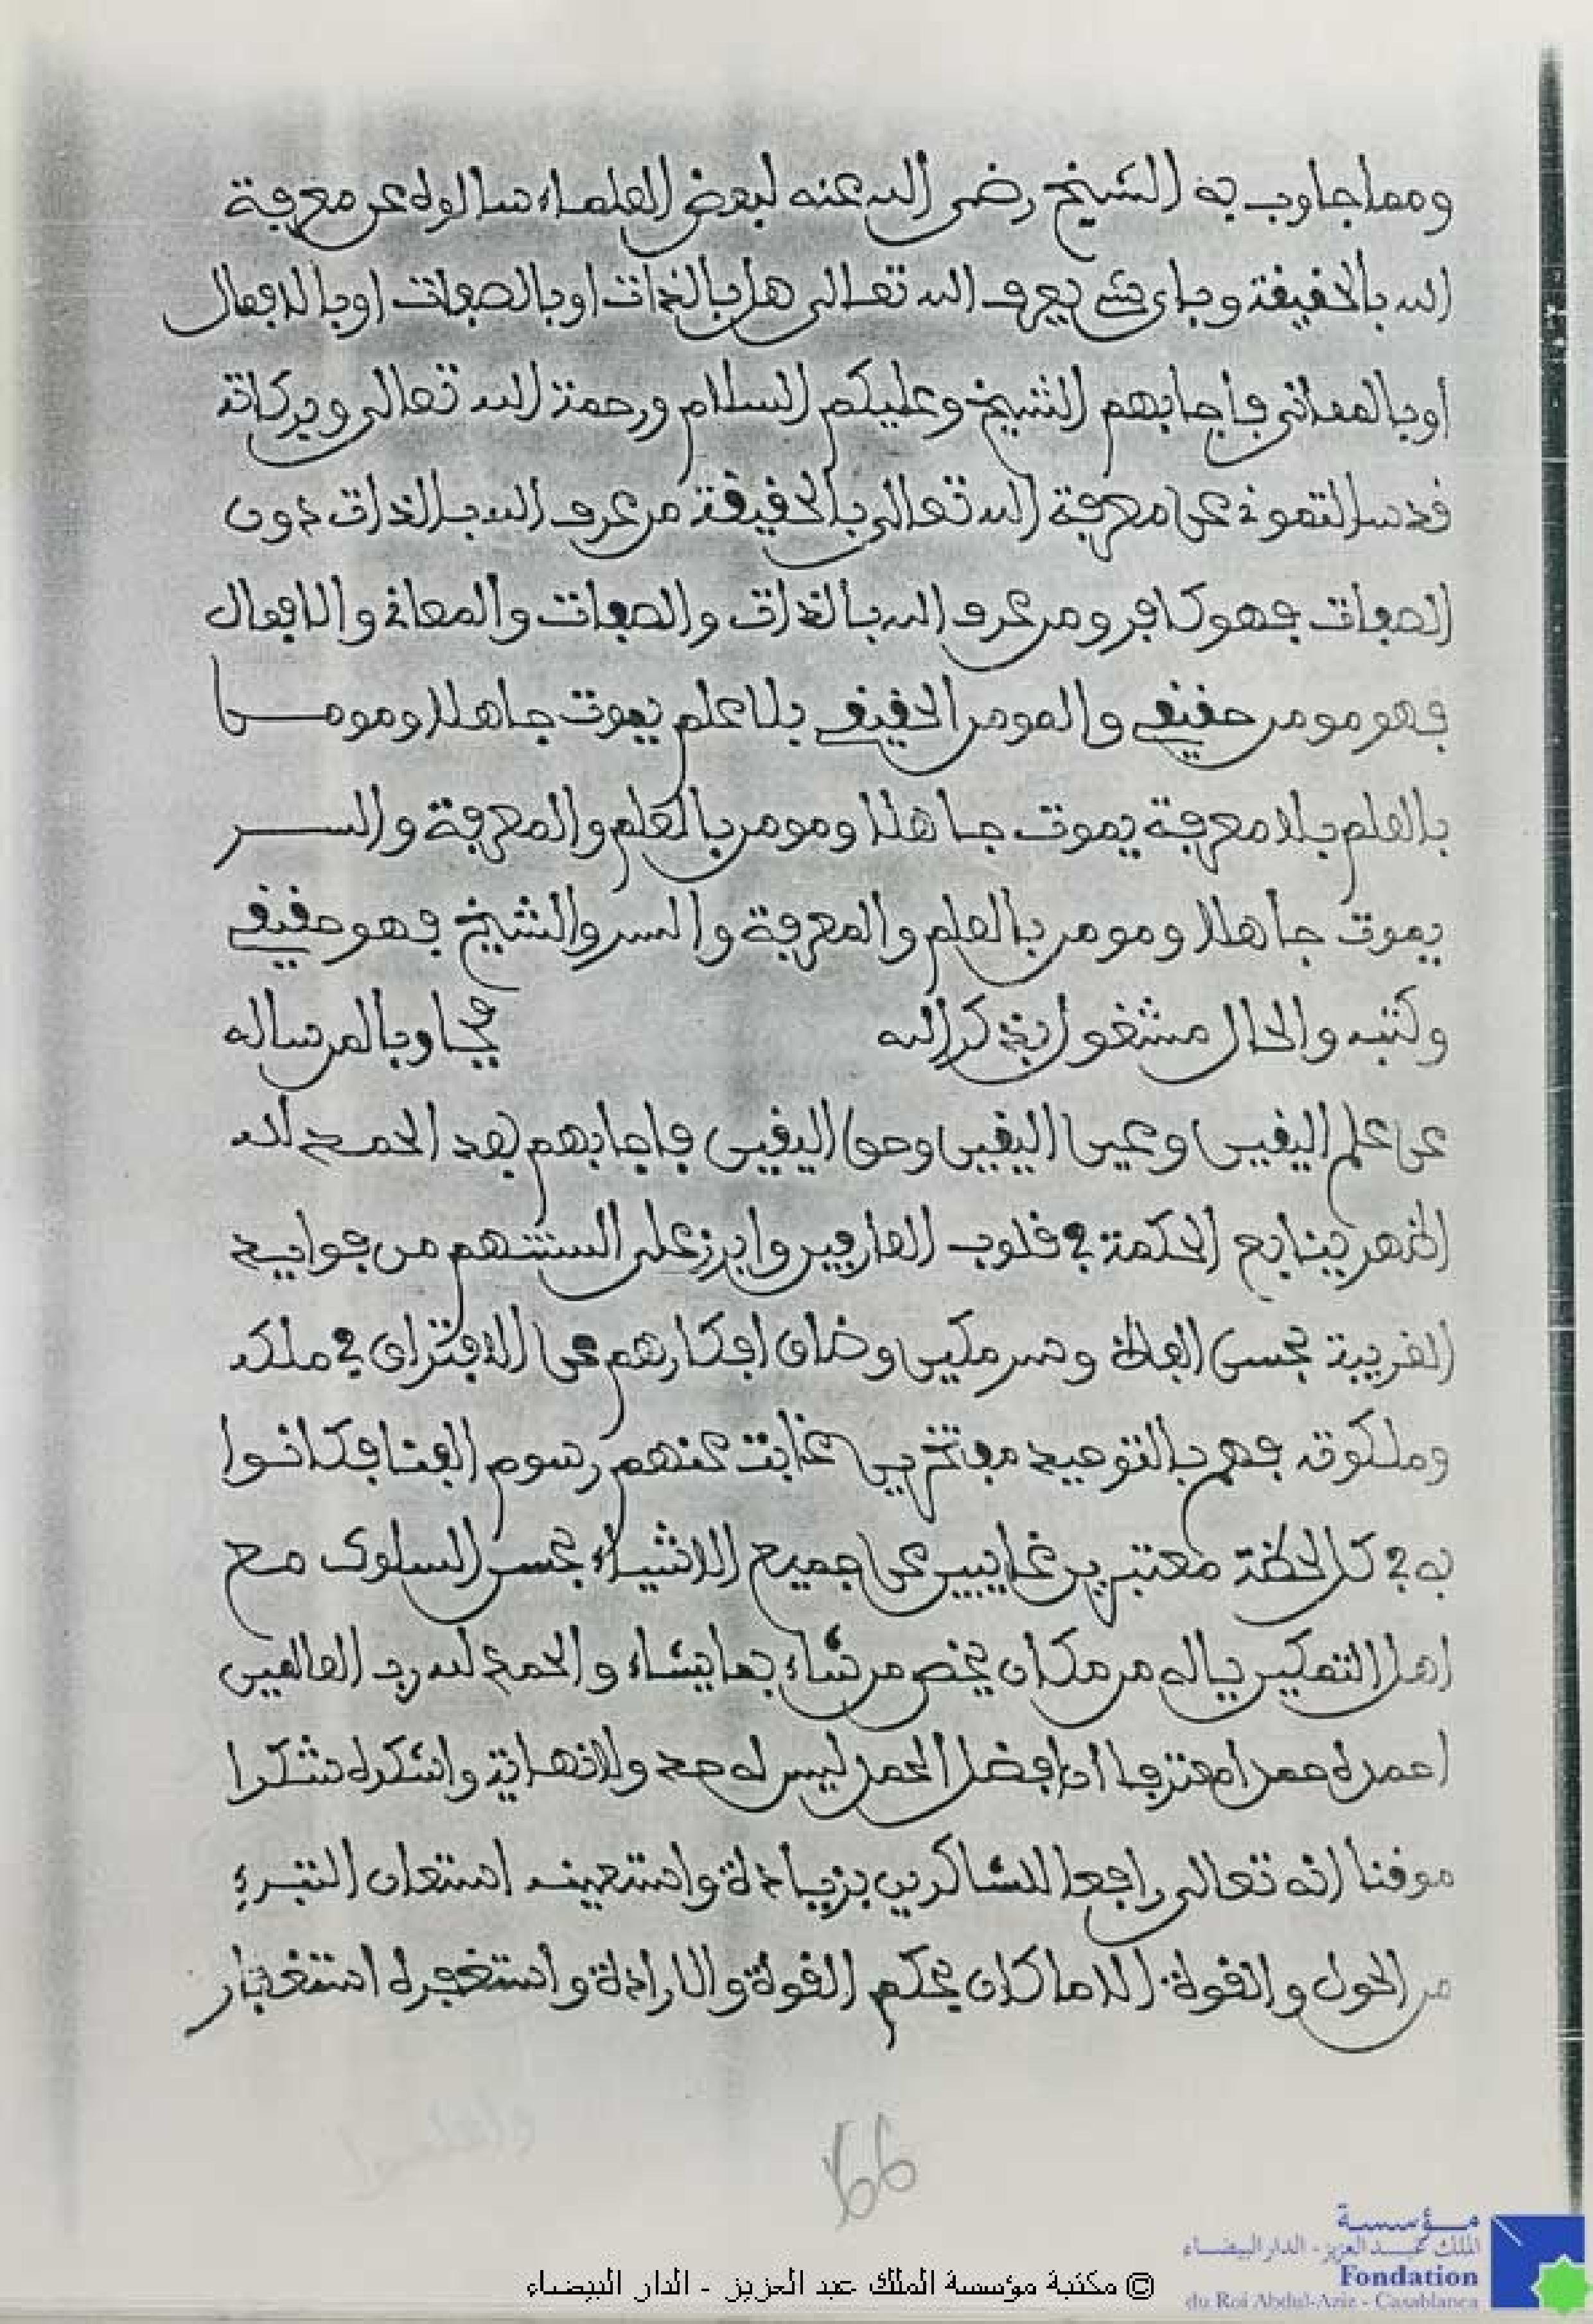 ومما جاوب به الشيخ رضي الله عنه لبعض العلماء سالوله عن معرفة
الله بالحقيقة وباي شيء يعرف الله تعالى هل بالذات او بالصفات او بالافعال
أوبالمعاني فأجابهم الشيخ وعليكم السلام ورحمة الله تعالى وبركاته
قد سالتموني عن معرفة الله تعالى بالحقيقة من عرف الله بالذات دون
الصفات فهو كافر ومن عرف الله بالذات والصفات والمعاني والافعال
فهو مومن حقيقي والمومن الحقيقي بلا علم يموت جاهلا ومومن
بالعلم بلا معرفة يموت جاهلا ومومن بالعلم والمعرفة والسر
يموت جاهلا ومومن بالعلم والمعرفة والسر والشيخ فهو حقيقي
وكتبه والحال مشغول بذكر الله مجاوبا لمن ساله
عن علم اليقين وعين اليقين وحق اليقين فاجابهم بعد الحمد لله
الذي ينابع الحكمة في قلوب العارفين وابرز على السنتهم من فوايد
الغريبة بحسن وضاق افكارهم عن الافتراق في ملكه
وملكوته فهم بالتوحيد مفتخرين غابت عنهم رسوم الفنا فكانوا
به في كل لحظة معتبرين غايبين عن جميع الاشياء بحسن السلوك مع
اهل التمكين ياله من مكان يخص من شاء بما يشاء والحمد لله رب العالمين
احمده حمدا معترفا ان افضل الحمد ليس له حد ولا نهاية واشكره شكرا
موقنا انه تعالى رافعا للشاكرين بزيادة واستعينه استعان التبرء
من الحول والقوة الا ما كان بحكم القوة والارادة واستغفره استغفار
166
مؤسسة
الملك عبد العزيز - الدار البيضاء
Fondation
du Roi Abdul-Aziz - Casablanca
© مكتبة مؤسسة الملك عبد العزيز - الدار البيضاء